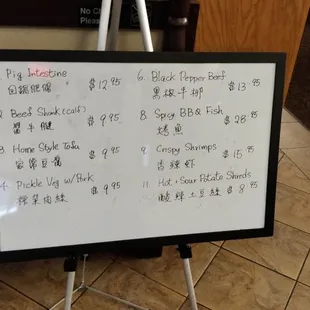 No C
Please
Pig Intestine $12.95
回鍋肥腸
2 Beef Shank (calf) $9.95
醬牛腱
3 Home Style Tofu $9.95
家常豆腐
4. Pickle Veg w/Pork $9.95
榨菜肉絲
6. Black Pepper Beef $13.95
黑椒牛柳
8. Spicy BBQ Fish $28.95
烤魚
9. Crispy Shrimps $15.95
香辣蝦
11. Hot + Sour Potato Shreds $8.95
酸辣土豆絲